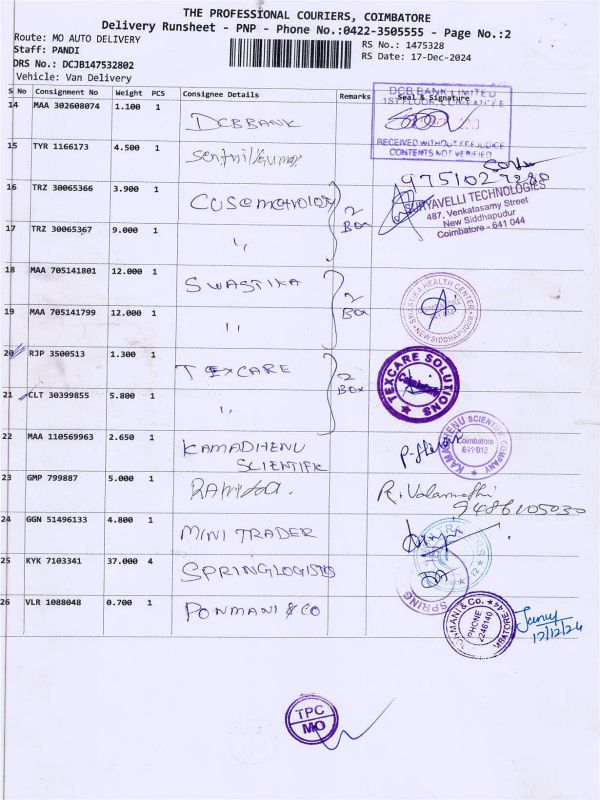 THE PROFESSIONAL COURIERS, COIMBATORE
Delivery Runsheet - PNP - Phone No.:0422-3505555 - Page No.:2
Route: MO AUTO DELIVERY
Staff: PANDI
DRS No.: DCJB147532802
Vehicle: Van Delivery
RS No.: 1475328
RS Date: 17-Dec-2024
S No Consignment No Weight PCS Consignee Details Remarks Seal & Signature
14 MAA 302608074 1.100 1 DCB BANK
DCB BANK LIMITED
RECEIVED WITHOUT PREJUDICE
CONTENTS NOT VERIFIED
15 TYR 1166173 4.500 1
16 TRZ 30065366 3.900 1 2 Box
SURYAVELLI TECHNOLOGIES
487, Venkatasamy Street
New Siddhapudur
Coimbatore - 641 044
17 TRZ 30065367 9.000 1 "
18 MAA 705141801 12.000 1 SWASTIKA 2 Box
SWASTIKA HEALTH CENTER
NEW SIDDHAPUDUR
19 MAA 705141799 12.000 1 "
20 RJP 3500513 1.300 1 TEXCARE 2 Box
TEXCARE SOLUTIONS
21 CLT 30399855 5.800 1 "
22 MAA 110569963 2.650 1 KAMADHENU SCIENTIFIC
KAMADHENU SCIENTIFIC COMPANY
Coimbatore
641 012
23 GMP 799887 5.000 1
R. Valarmathi
9486105030
24 GGN 51496133 4.800 1 MINI TRADER
25 KYK 7103341 37.000 4 SPRINGLOGISTICS
SPRING
26 VLR 1088048 0.700 1 PONMANI & CO
PONMANI & CO.
PHONE
2246140
TPC
MO